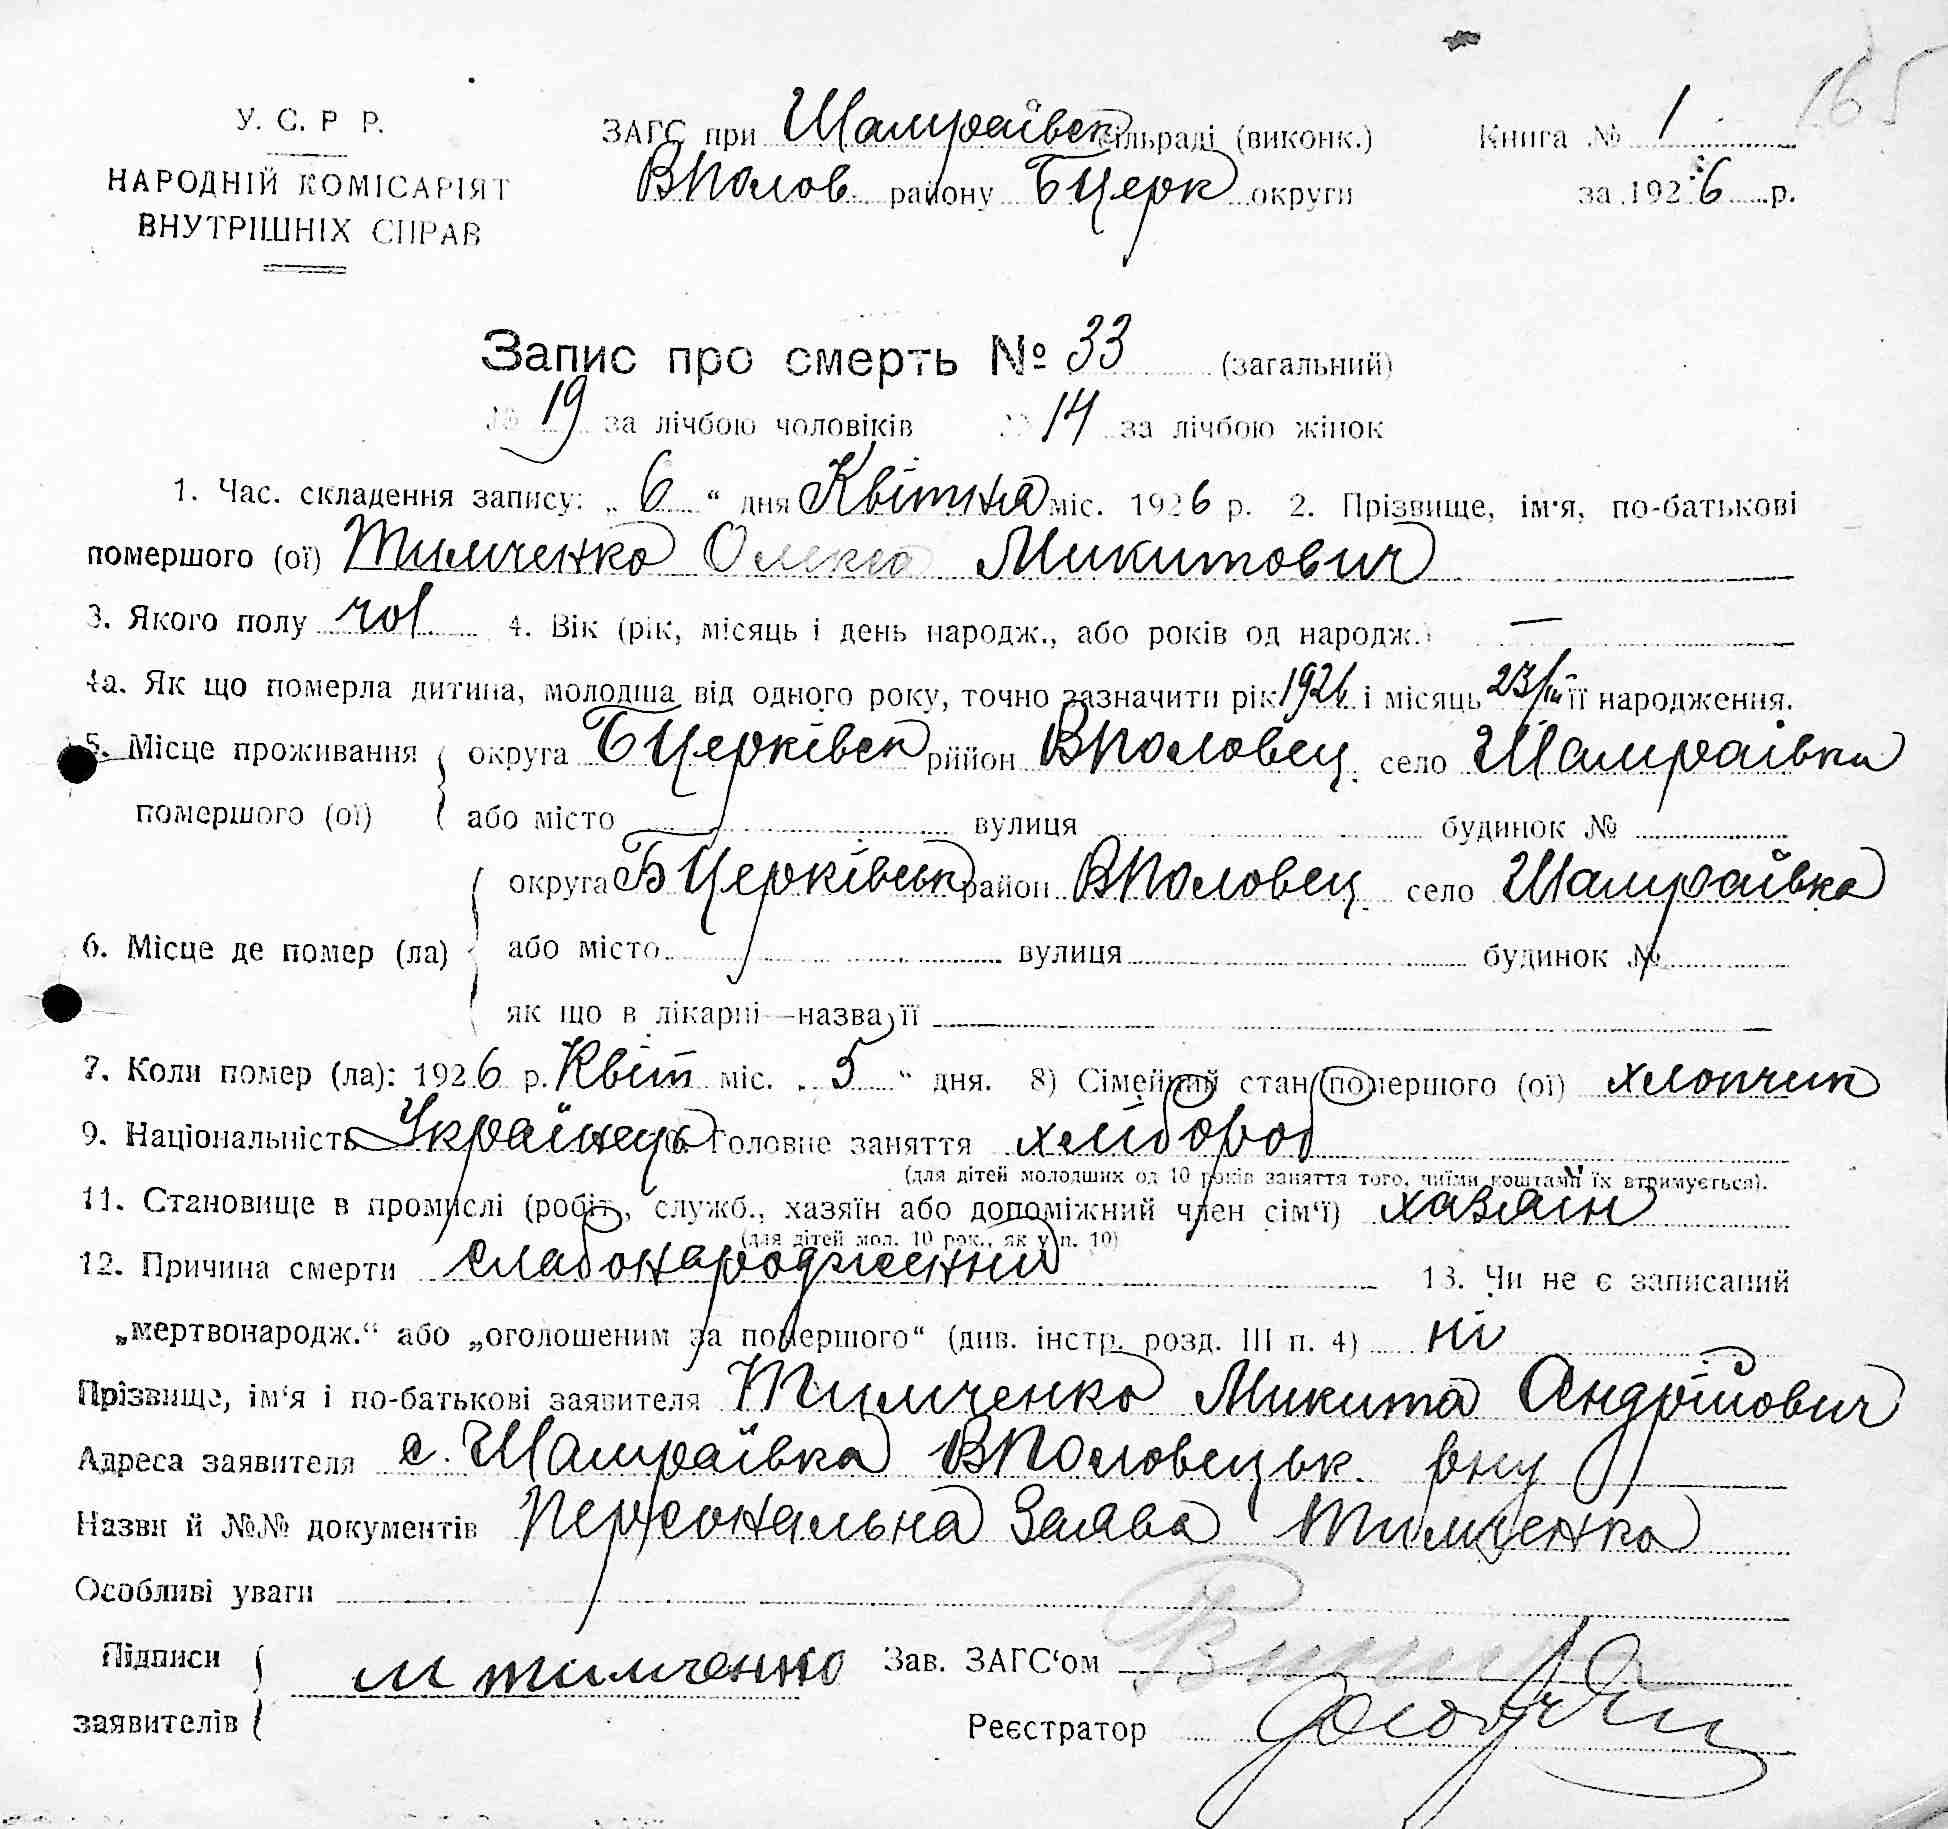 165
У. С. Р Р.
ЗАГС при Шамраївск сільраді (виконк.) Книга № 1
НАРОДНІЙ КОМІСАРІЯТ
ВПолов району БЦерк округи за 1926 р.
ВНУТРІШНІХ СПРАВ
Запис про смерть № 33 (загальний)
№ 19 за лічбою чоловіків № 14 за лічбою жінок
1. Час. складення запису: „ 6 “ дня Квітня міс. 1926 р. 2. Прізвище, ім'я, по-батькові
помершого (ої) Тимченко Олекса Микитович
3. Якого полу чол 4. Вік (рік, місяць і день народж., або років од народж.) —
4а. Як що померла дитина, молодша від одного року, точно зазначити рік 1926 і місяць 23/III її народження.
5. Місце проживання округа БЦерківск рййон ВПоловец. село Шамраівка
помершого (ої) або місто вулиця будинок №
округа БЦерківськ район ВПоловец. село Шамраївка
6. Місце де помер (ла) або місто вулиця будинок №
як що в лікарні—назва її
7. Коли помер (ла): 1926 р. Квіт міс. „ 5 “ дня. 8) Сімейний стан помершого (ої) хлопчик
9. Національність Українець Головне заняття хлібороб
(для дітей молодших од 10 років заняття того, чиїми коштами їх втримується).
11. Становище в промислі (робіт., служб., хазяїн або допоміжний член сім'ї) хазяїн
(для дітей мол. 10 рок., як у п. 10)
12. Причина смерти слабонароджений 13. Чи не є записаний
„мертвонародж.“ або „оголошеним за помершого“ (див. інстр. розд. III п. 4) ні
Прізвище, ім'я і по-батькові заявителя Тимченко Микита Андрійович
Адреса заявителя с. Шамраївка ВПоловецьк. рну
Назви й №№ документів Персональна Заява Тимченка
Особливі уваги
Підписи М Тимченко Зав. ЗАГС'ом
заявителів Реєстратор